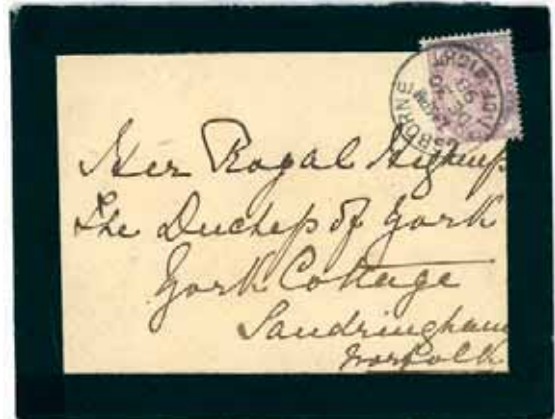 Her Royal Highness
The Duchess of York
York Cottage
Sandringham
Norfolk